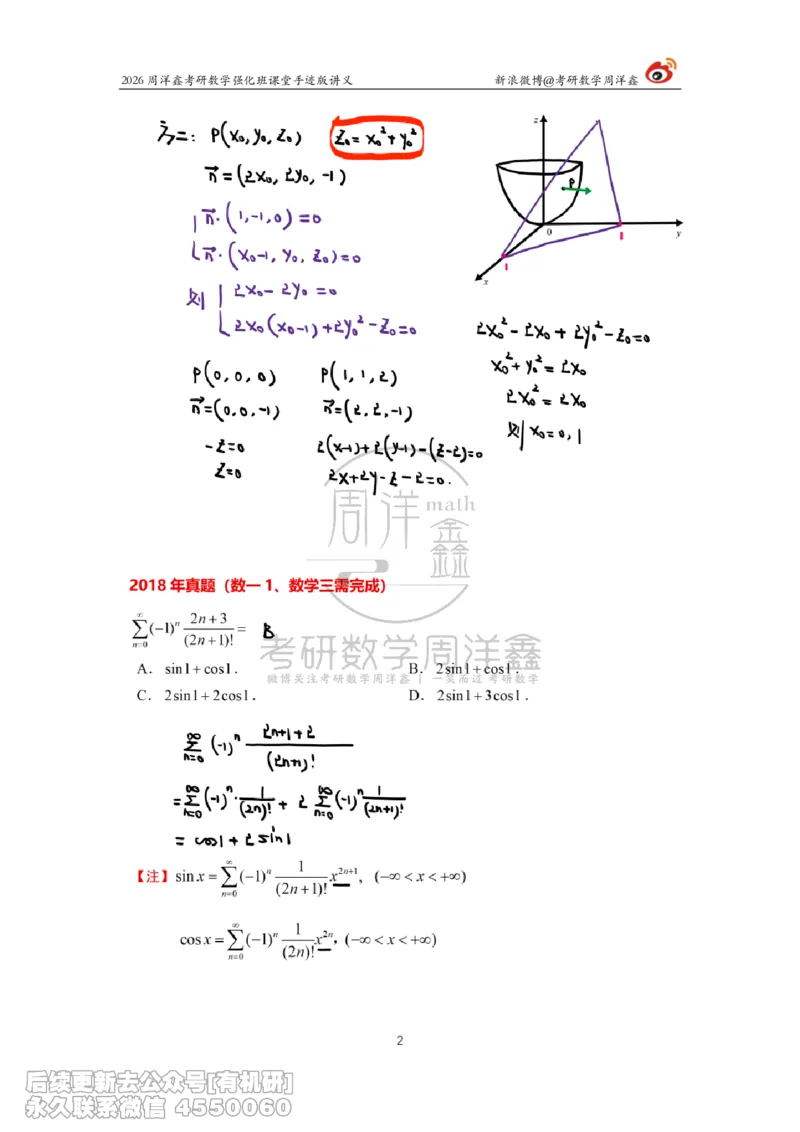 2026周洋鑫考研数学强化班课堂手迹版讲义 新浪微博@考研数学周洋鑫
方二: P(x₀, y₀, z₀) z₀=x₀²+y₀²
n⃗=(2x₀, 2y₀, -1)
n⃗·(1,-1,0)=0
n⃗·(x₀-1, y₀, z₀)=0
则 2x₀-2y₀=0
2x₀(x₀-1)+2y₀²-z₀=0
z
P
0
1
y
1
x
2x₀²-2x₀+2y₀²-z₀=0
x₀²+y₀²=2x₀
2x₀²=2x₀
则 x₀=0,1
P(0,0,0) P(1,1,2)
n⃗=(0,0,-1) n⃗=(2,2,-1)
-z=0 2(x-1)+2(y-1)-(z-2)=0
z=0 2x+2y-z-2=0.
周洋鑫math
2018年真题（数一1、数学三需完成）
∑_{n=0}^{∞}(-1)ⁿ (2n+3)/(2n+1)! = B
考研数学周洋鑫
微博关注考研数学周洋鑫 | 一笑而过 考研数学
A. sin1+cos1. B. 2sin1+cos1.
C. 2sin1+2cos1. D. 2sin1+3cos1.
∑_{n=0}^{∞}(-1)ⁿ (2n+1+2)/(2n+1)!
=∑_{n=0}^{∞}(-1)ⁿ·1/(2n)! + 2∑_{n=0}^{∞}(-1)ⁿ 1/(2n+1)!
= cos1+2sin1
【注】sin x=∑_{n=0}^{∞}(-1)ⁿ 1/(2n+1)! x²ⁿ⁺¹, (-∞<x<+∞)
cos x=∑_{n=0}^{∞}(-1)ⁿ 1/(2n)! x²ⁿ, (-∞<x<+∞)
2
后续更新去公众号[有机研]
永久联系微信 4550060